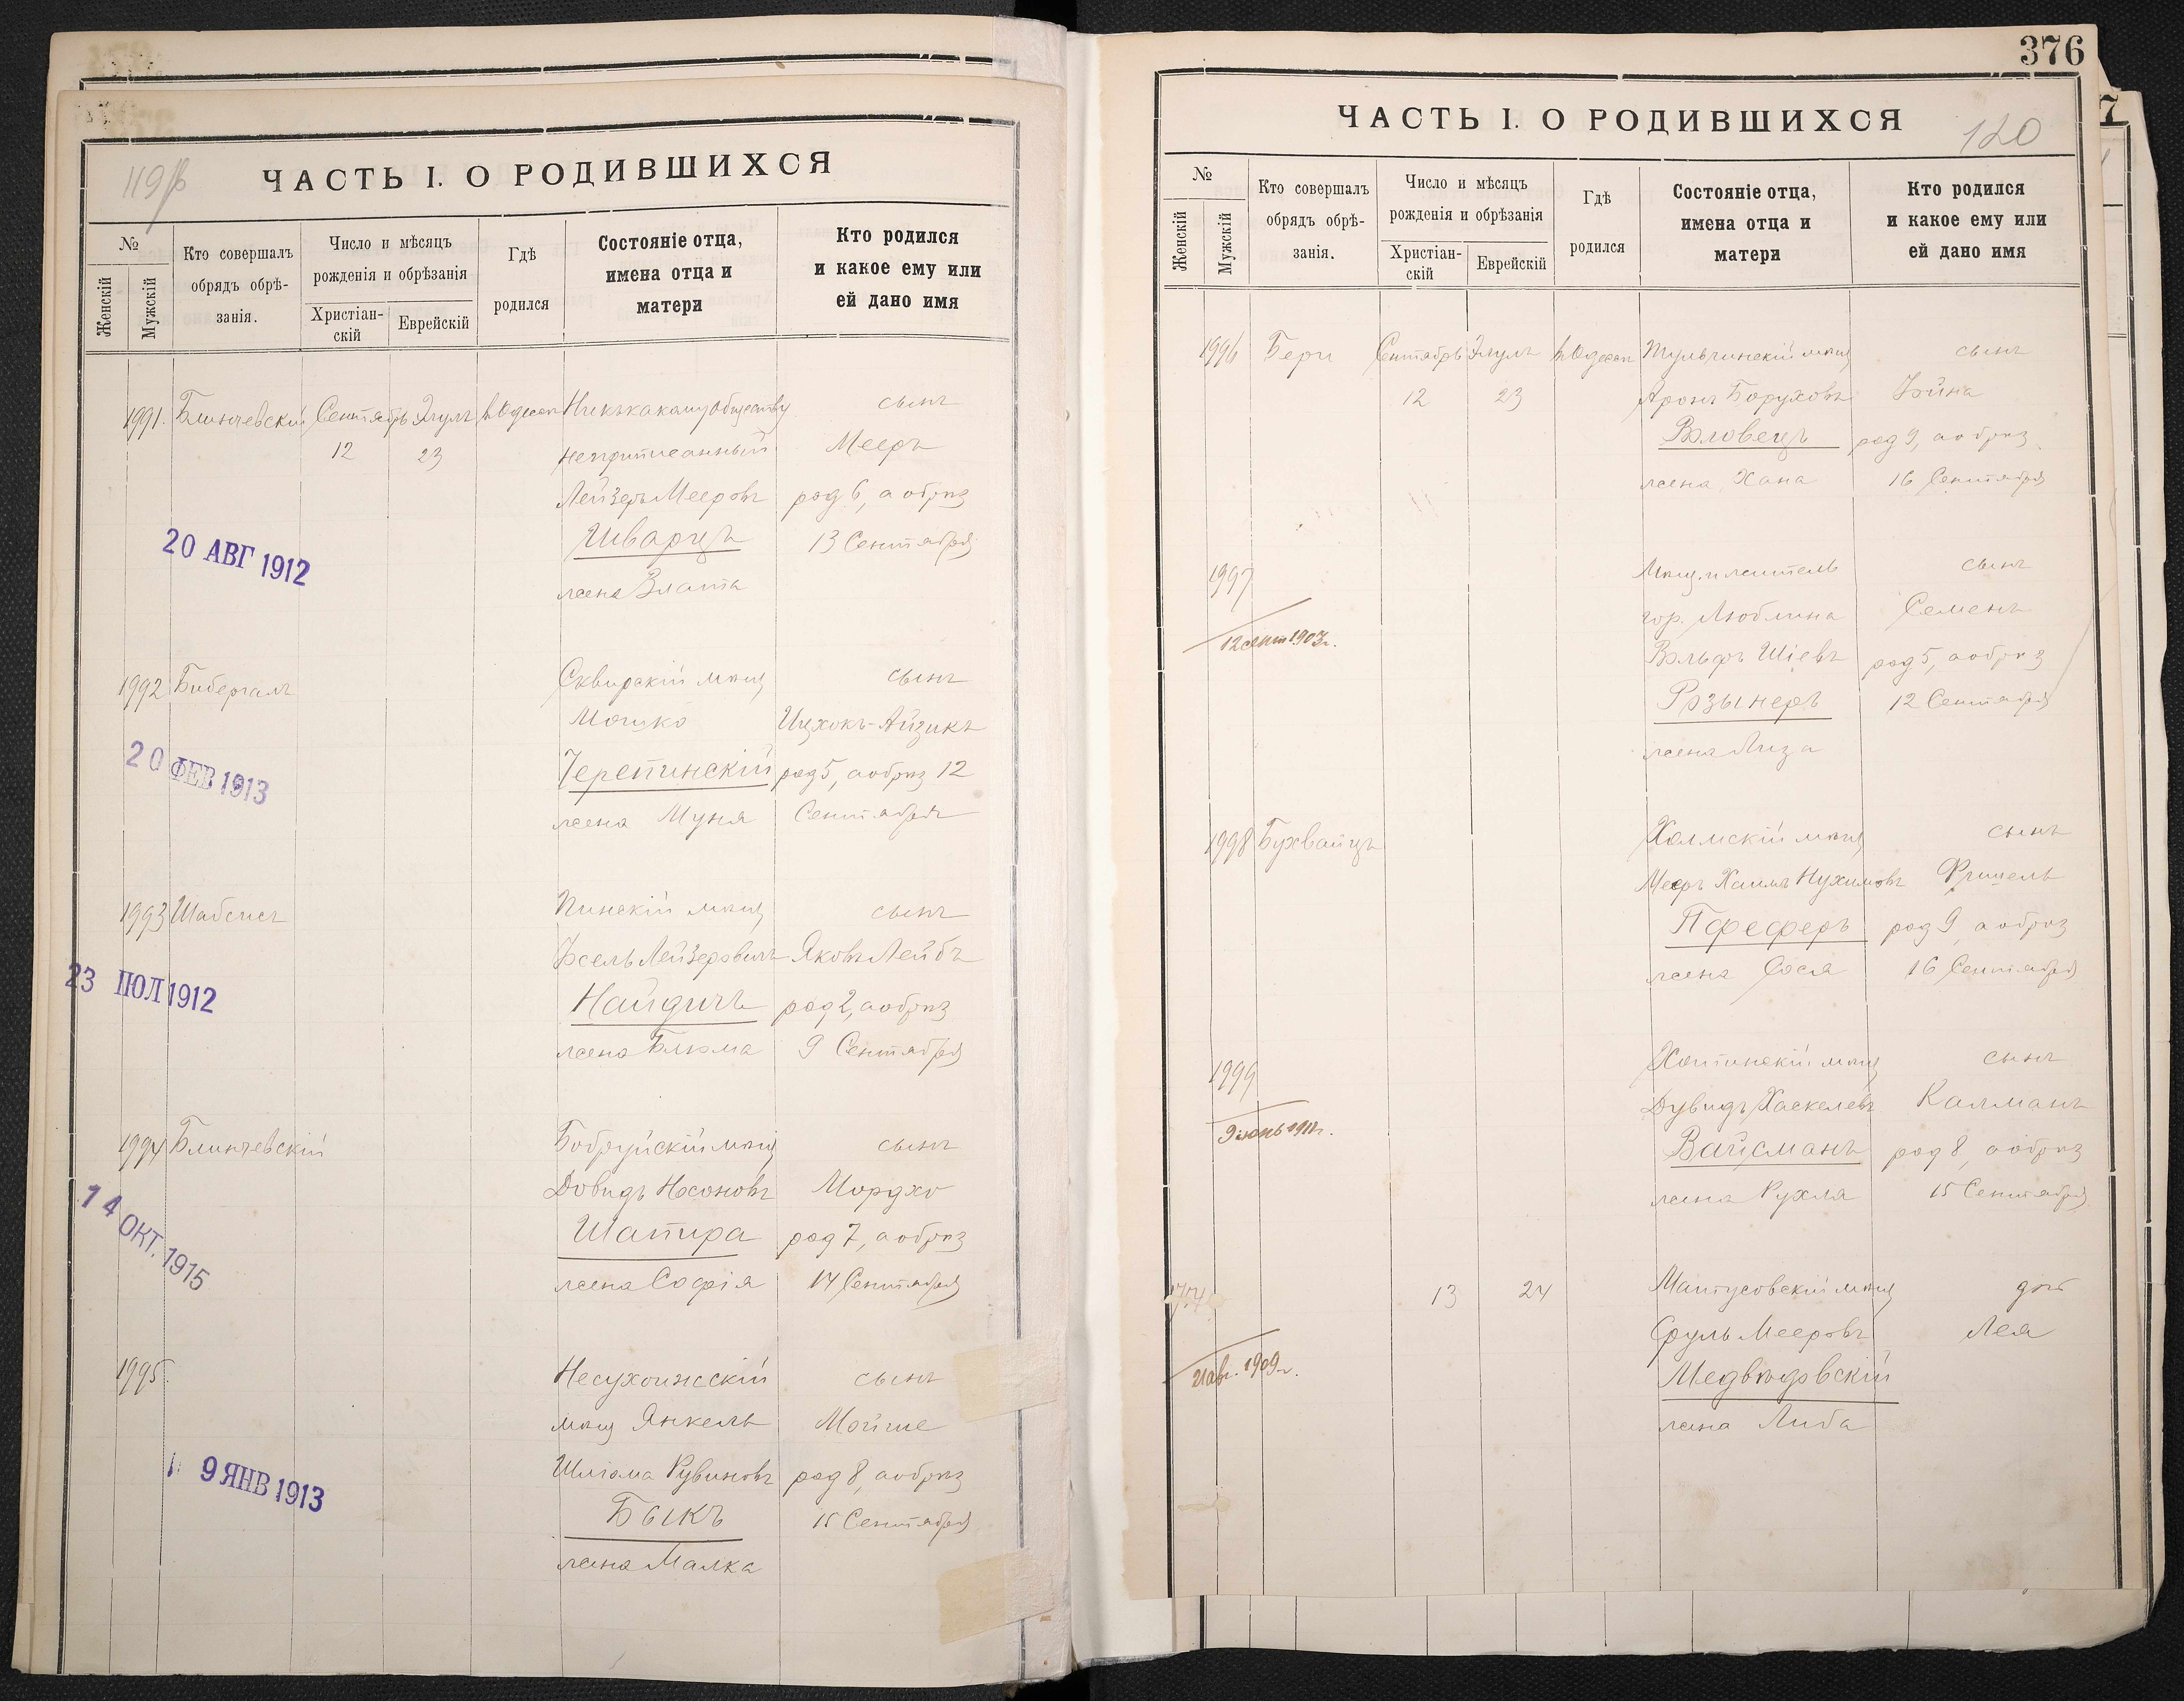 119 об
ЧАСТЬ I. О РОДИВШИХСЯ
№
Женскій
Мужскій
Кто совершалъ
обрядъ обрѣ-
занія.
Число и мѣсяцъ
рожденія и обрѣзанія
Христіан-
скій
Еврейскій
Гдѣ
родился
Состояніе отца,
имена отца и
матери
Кто родился
и какое ему или
ей дано имя
1991. Блинчевскій Сентябрь Элулъ въ Одессѣ Никъ какому обществу сынъ
12 23 неприписанный Мееръ
Лейзеръ Мееровъ род 6, а обрѣз
Шварцъ 13 Сентября
жена Злата
20 АВГ 1912
1992 Бибергалъ Сквирскій мѣщ сынъ
Мошко Ицхокъ-Айзикъ
Черепинскій род 5, а обрѣз 12
жена Муня Сентября
20 ФЕВ 1913
1993 Шабсисъ Пинскій мѣщ сынъ
Іосель Лейзеровичъ Яковъ Лейбъ
Найдичъ род 2, а обрѣз
жена Блюма 9 Сентября
23 ІЮЛ 1912
1994 Блинчевскій Бобруйскій мѣщ сынъ
Довидъ Носоновъ Мордхо
Шапира род 7, а обрѣз
жена Софія 14 Сентября
14 ОКТ. 1915
1995 Несухоижскій сынъ
мѣщ Янкель Мойше
Шліома Рувиновъ род 8, а обрѣз
Быкъ 15 Сентября
жена Малка
9 ЯНВ 1913
376
ЧАСТЬ I. О РОДИВШИХСЯ
120
№
Женскій
Мужскій
Кто совершалъ
обрядъ обрѣ-
занія.
Число и мѣсяцъ
рожденія и обрѣзанія
Христіан-
скій
Еврейскій
Гдѣ
родился
Состояніе отца,
имена отца и
матери
Кто родился
и какое ему или
ей дано имя
1996 Бери Сентябрь Элулъ въ Одессѣ Тульчинскій мѣщ сынъ
12 23 Аронъ Боруховъ Іойна
Воловецъ род 9, а обрѣз
жена Хана 16 Сентября
1997 Мѣщ. и житель сынъ
гор. Люблина Семенъ
Вольфъ Шіевъ род 5, а обрѣз
Розынеръ 12 Сентября
жена Лиза
12 сент 1907г.
1998 Бухвайцъ Холмскій мѣщ сынъ
Мееръ Хаимъ Нухимовъ Фришель
Пфеферъ род 9, а обрѣз
жена Сося 16 Сентября
1999 Хотинскій мѣщ сынъ
Дувидъ Хаскелевъ Калманъ
Вайсманъ род 8, а обрѣз
жена Рухля 15 Сентября
13 24 Мантусовскій мѣщ дочь
Сруль Мееровъ Лея
Медвѣдовскій
жена Либа
21 авг. 1909г.